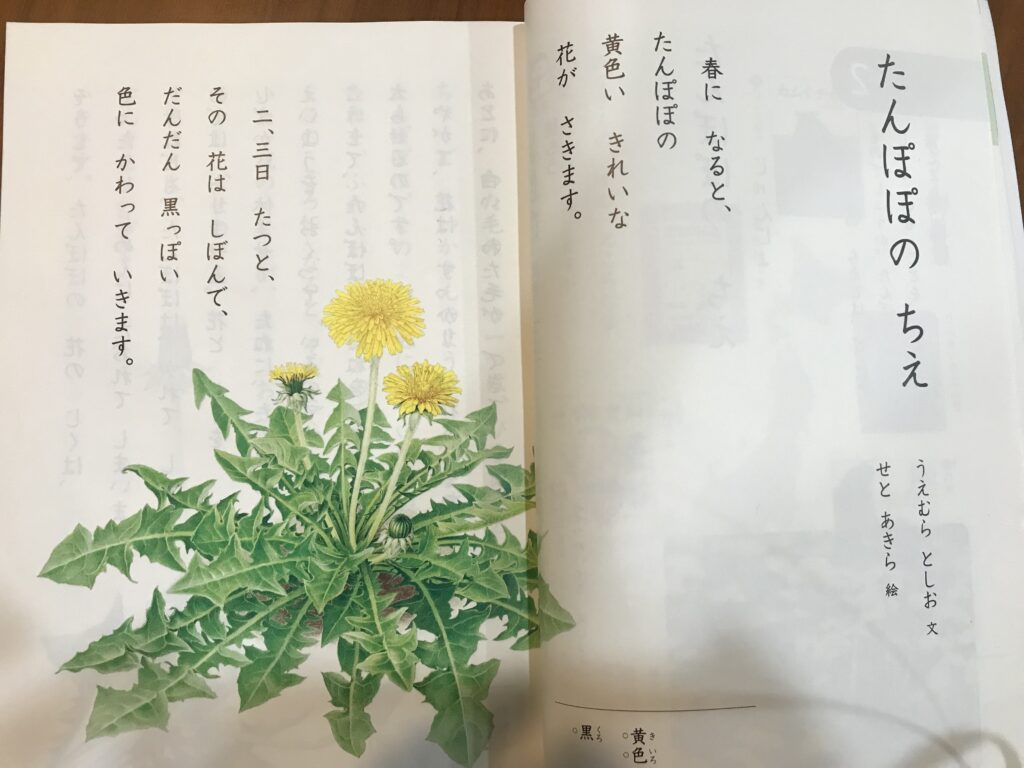 たんぽぽの ちえ
うえむら としお 文
せと あきら 絵
春に なると、
たんぽぽの
黄色い きれいな
花が さきます。
黄色
きいろ
黒
くろ
二、三日 たつと、
その 花は しぼんで、
だんだん 黒っぽい
色に かわって いきます。